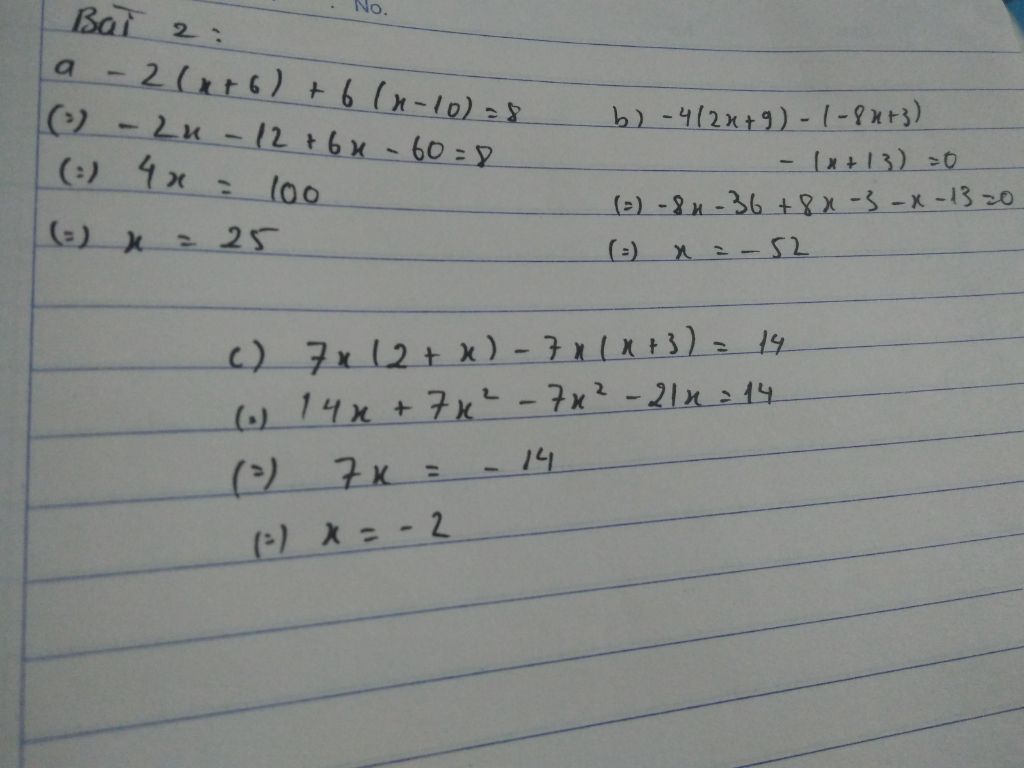 No.
Bài 2 :
a - 2(x+6) + 6(x-10) = 8
(=) - 2x - 12 + 6x - 60 = 8
(=) 4x = 100
(=) x = 25
b) -4(2x+9) - (-8x+3)
- (x+13) = 0
(=) -8x - 36 + 8x - 3 - x - 13 = 0
(=) x = - 52
c) 7x(2 + x) - 7x(x+3) = 14
(=) 14x + 7x² - 7x² - 21x = 14
(=) 7x = - 14
(=) x = - 2